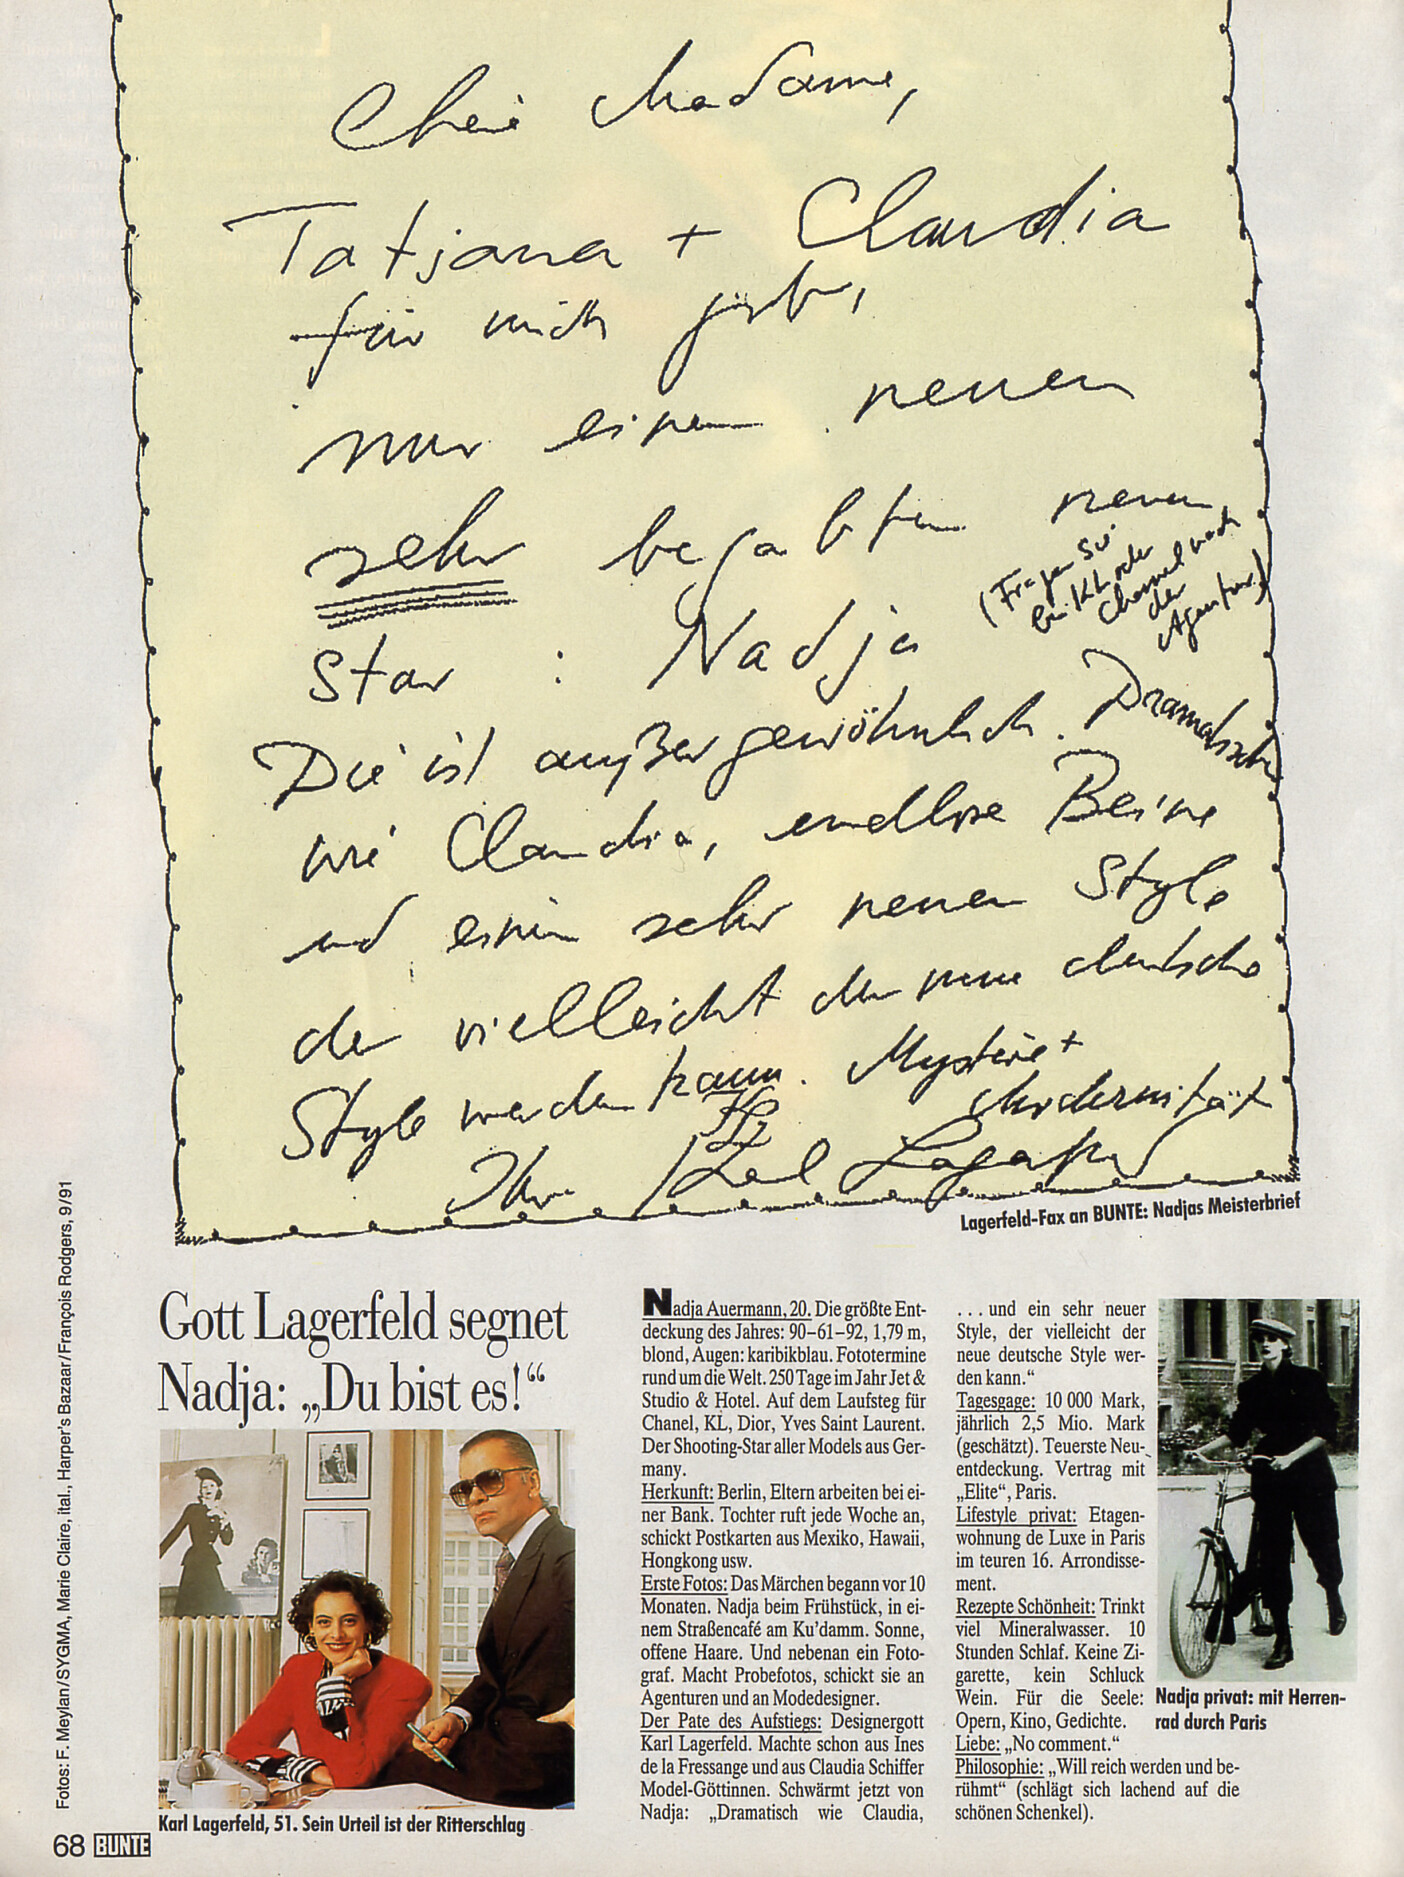 Chère Madame,
Tatjana + Claudia
für mich gibt's
nur einen neuen
sehr begabten neuen
(Fragen Sie
bei KL oder
Chanel nach
der
Agentur)
Star : Nadja
Die ist außergewöhnlich. Dramatisch
wie Claudia, endlose Beine
und einen sehr neuen Style
der vielleicht der neue deutsche
Style werden kann. Mystère +
Modernität
KL
Ihr Karl Lagerfeld
Lagerfeld-Fax an BUNTE: Nadjas Meisterbrief
Fotos: F. Meylan/SYGMA, Marie Claire, ital., Harper's Bazaar/François Rodgers, 9/91
Gott Lagerfeld segnet
Nadja: „Du bist es!“
Karl Lagerfeld, 51. Sein Urteil ist der Ritterschlag
Nadja Auermann, 20. Die größte Ent-
deckung des Jahres: 90–61–92, 1,79 m,
blond, Augen: karibikblau. Fototermine
rund um die Welt. 250 Tage im Jahr Jet &
Studio & Hotel. Auf dem Laufsteg für
Chanel, KL, Dior, Yves Saint Laurent.
Der Shooting-Star aller Models aus Ger-
many.
Herkunft: Berlin, Eltern arbeiten bei ei-
ner Bank. Tochter ruft jede Woche an,
schickt Postkarten aus Mexiko, Hawaii,
Hongkong usw.
Erste Fotos: Das Märchen begann vor 10
Monaten. Nadja beim Frühstück, in ei-
nem Straßencafé am Ku'damm. Sonne,
offene Haare. Und nebenan ein Foto-
graf. Macht Probefotos, schickt sie an
Agenturen und an Modedesigner.
Der Pate des Aufstiegs: Designergott
Karl Lagerfeld. Machte schon aus Ines
de la Fressange und aus Claudia Schiffer
Model-Göttinnen. Schwärmt jetzt von
Nadja: „Dramatisch wie Claudia,
. . . und ein sehr neuer
Style, der vielleicht der
neue deutsche Style wer-
den kann.“
Tagesgage: 10 000 Mark,
jährlich 2,5 Mio. Mark
(geschätzt). Teuerste Neu-
entdeckung. Vertrag mit
„Elite“, Paris.
Lifestyle privat: Etagen-
wohnung de Luxe in Paris
im teuren 16. Arrondisse-
ment.
Rezepte Schönheit: Trinkt
viel Mineralwasser. 10
Stunden Schlaf. Keine Zi-
garette, kein Schluck
Wein. Für die Seele:
Opern, Kino, Gedichte.
Liebe: „No comment.“
Philosophie: „Will reich werden und be-
rühmt“ (schlägt sich lachend auf die
schönen Schenkel).
Nadja privat: mit Herren-
rad durch Paris
68 BUNTE